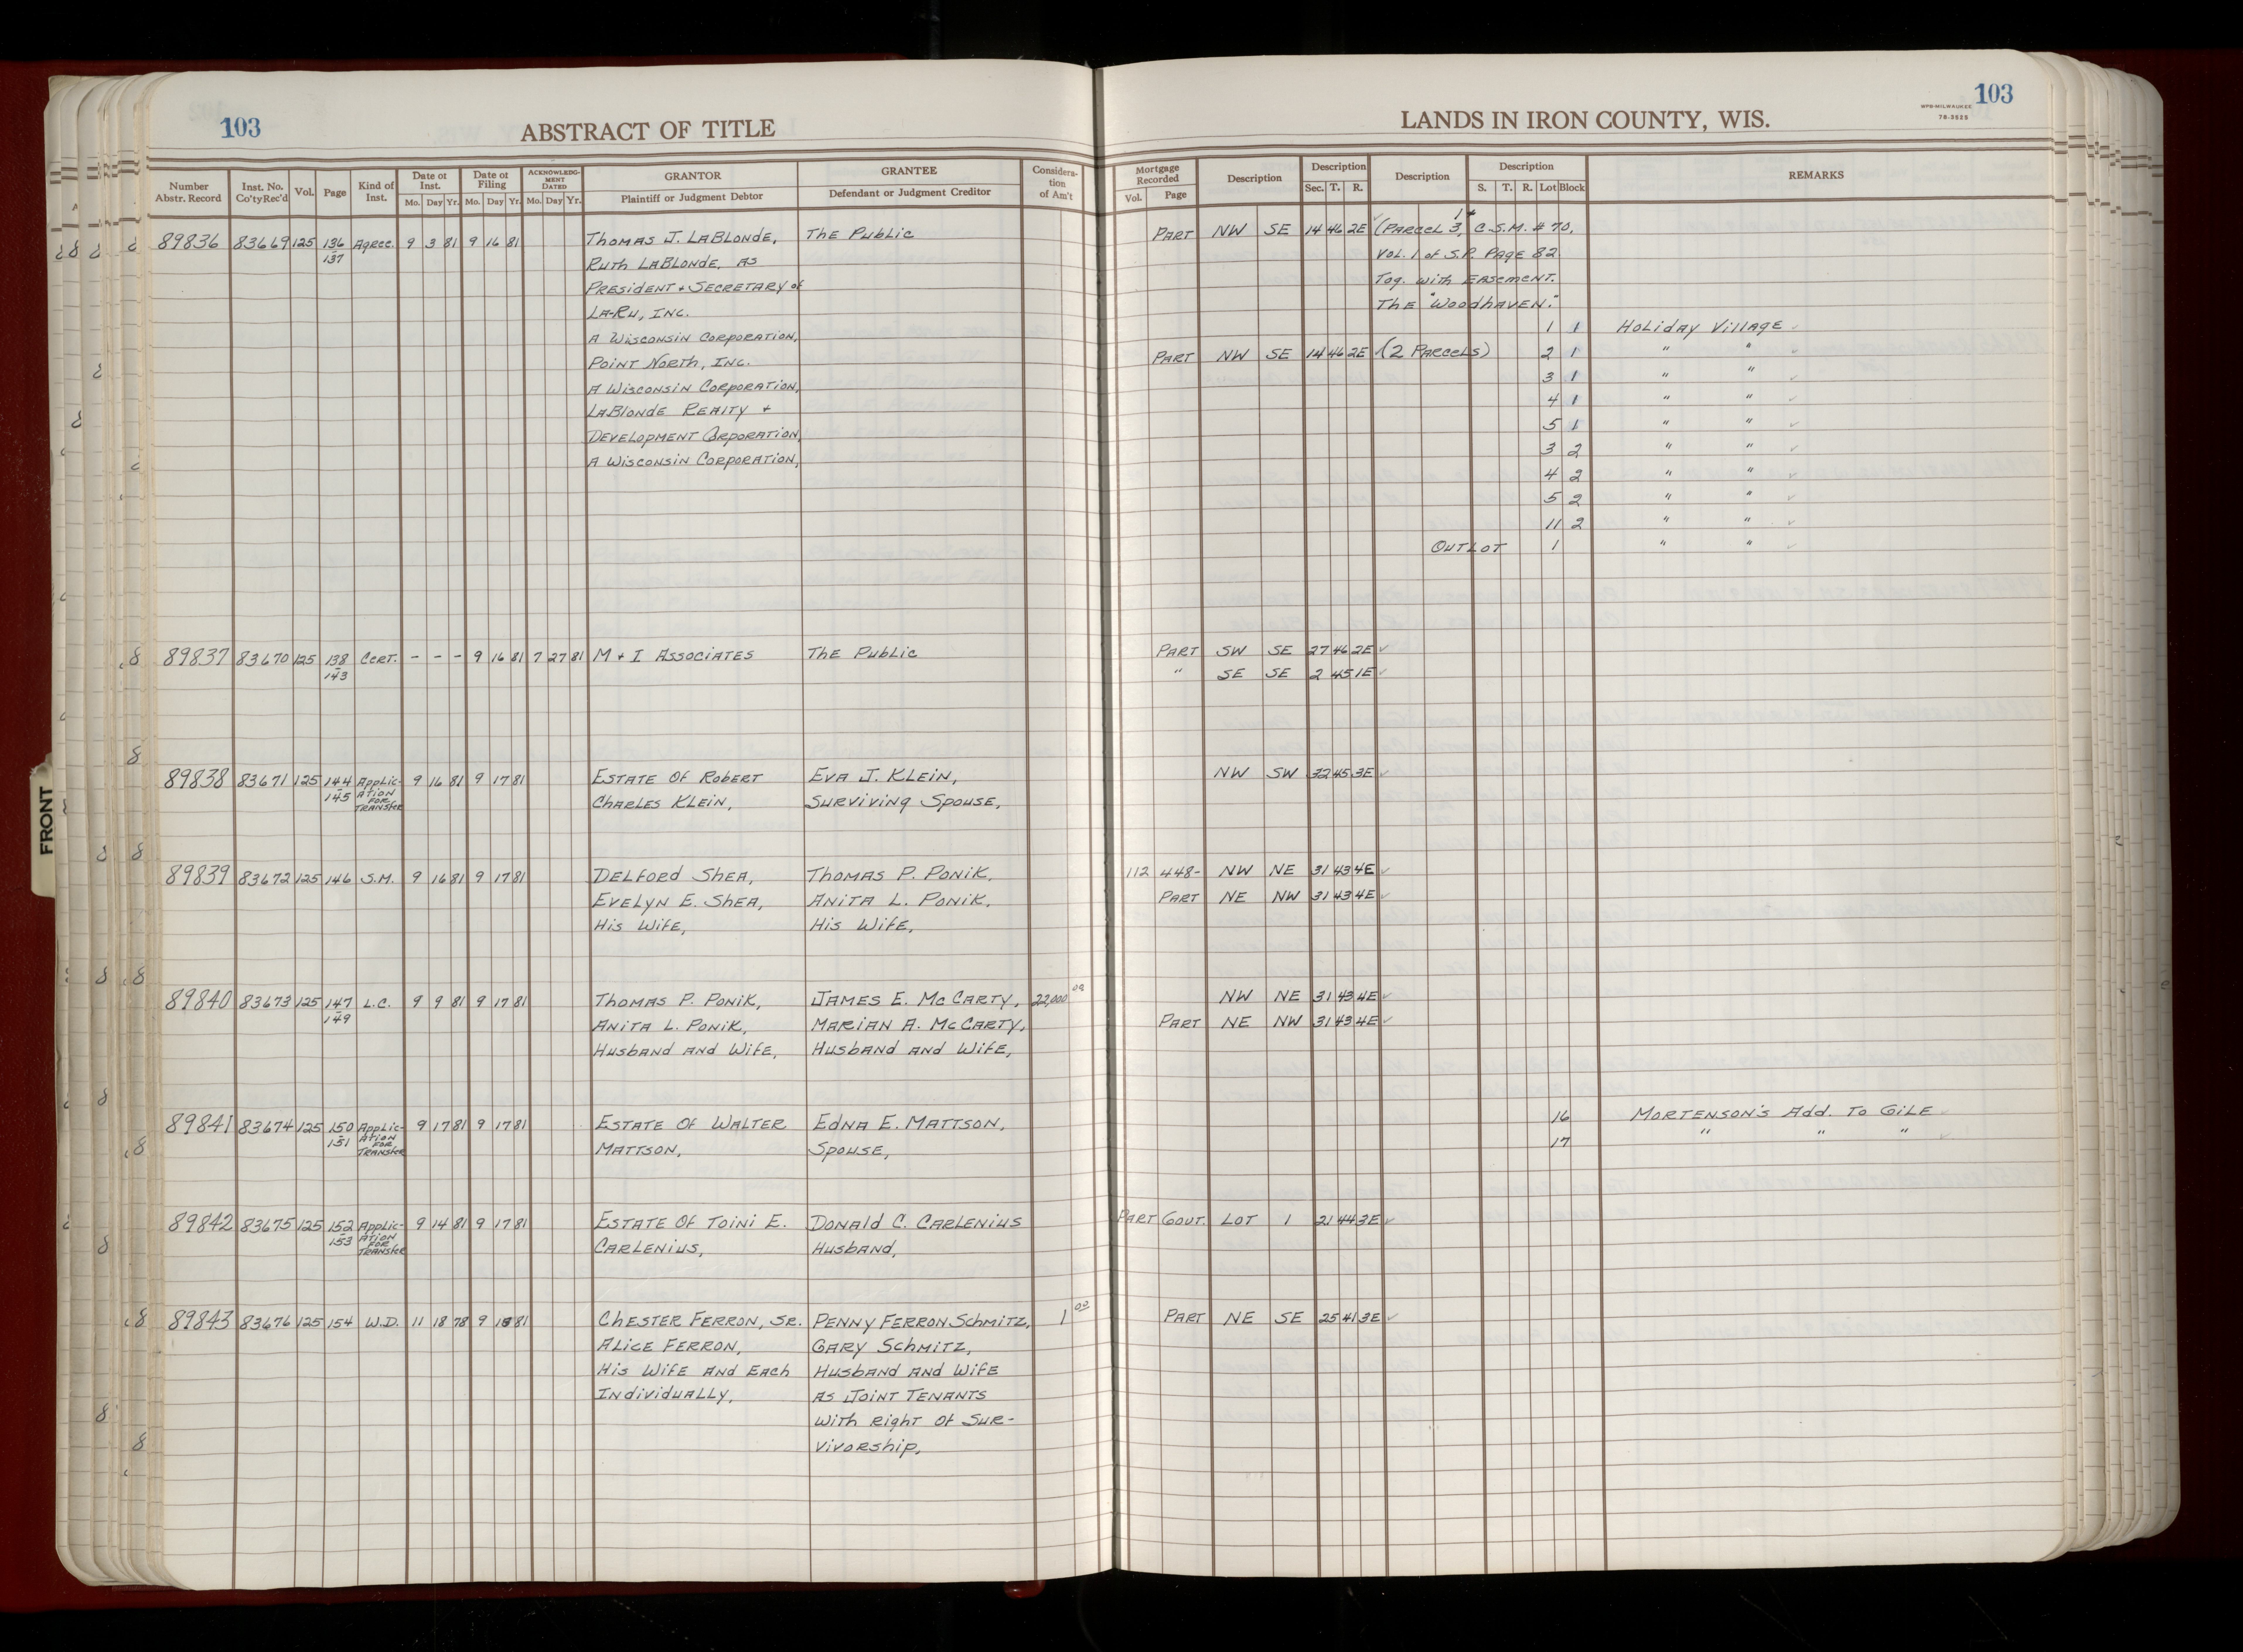 103
ABSTRACT OF TITLE
LANDS IN IRON COUNTY, WIS.
WPB-MILWAUKEE
78-3525
103
Number Abstr. Record | Inst. No. Co'ty Rec'd | Vol. | Page | Kind of Inst. | Date of Inst. Mo. Day Yr. | Date of Filing Mo. Day Yr. | ACKNOWLEDGMENT DATED Mo. Day Yr. | GRANTOR Plaintiff or Judgment Debtor | GRANTEE Defendant or Judgment Creditor | Consideration of Am't | Mortgage Recorded Vol. Page | Description | Description Sec. T. R. | Description | Description S. T. R. Lot Block | REMARKS
89836 83669 125 136 Agree. 9 3 81 9 16 81 Thomas J. LaBlonde, The Public PART NW SE 14 46 2E (Parcel 1+3, C.S.M. #70,
137 Ruth LaBlonde, as Vol. 1 of S.R. Page 82
President + Secretary of Tog. with Easement.
La-Ru, Inc. The "Woodhaven."
A Wisconsin Corporation, 1 1 Holiday Village
Point North, Inc. PART NW SE 14 46 2E (2 Parcels) 2 1 " "
A Wisconsin Corporation, 3 1 " "
LaBlonde Realty + 4 1 " "
Development Corporation, 5 1 " "
A Wisconsin Corporation, 3 2 " "
4 2 " "
5 2 " "
11 2 " "
Outlot 1 " "
89837 83670 125 138 Cert. - - - 9 16 81 7 27 81 M + I Associates The Public Part SW SE 27 46 2E
143 " SE SE 2 45 1E
89838 83671 125 144 Application for Transfer 9 16 81 9 17 81 Estate of Robert Eva J. Klein, NW SW 32 45 3E
145 Charles Klein, Surviving Spouse,
89839 83672 125 146 S.M. 9 16 81 9 17 81 Delford Shea, Thomas P. Ponik, 112 448- NW NE 31 43 4E
Evelyn E. Shea, Anita L. Ponik, Part NE NW 31 43 4E
His Wife, His Wife,
89840 83673 125 147 L.C. 9 9 81 9 17 81 Thomas P. Ponik, James E. McCarty, 22,000 00 NW NE 31 43 4E
149 Anita L. Ponik, Marian A. McCarty, Part NE NW 31 43 4E
Husband and Wife, Husband and Wife,
89841 83674 125 150 Application for Transfer 9 17 81 9 17 81 Estate of Walter Edna E. Mattson, 16 Mortenson's Add. to Gile
151 Mattson, Spouse, 17 " " "
89842 83675 125 152 Application for Transfer 9 14 81 9 17 81 Estate of Toini E. Donald C. Carlenius Part Govt. Lot 1 21 44 3E
153 Carlenius, Husband,
89843 83676 125 154 W.D. 11 18 78 9 18 81 Chester Ferron, Sr. Penny Ferron Schmitz, 1 00 Part NE SE 25 41 3E
Alice Ferron, Gary Schmitz,
His Wife and Each Husband and Wife
Individually, as Joint Tenants
with Right of Sur-
vivorship,
FRONT